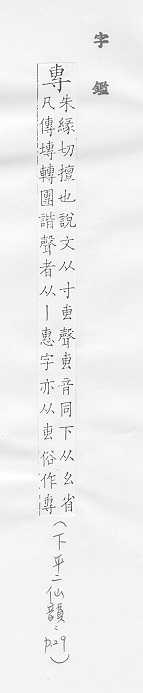 字鑑
專
朱緣切擅也說文从寸叀聲叀音同下从幺省
凡傳塼轉團諧聲者从丨惠字亦从叀俗作専
(下平二仙韻: p.29)